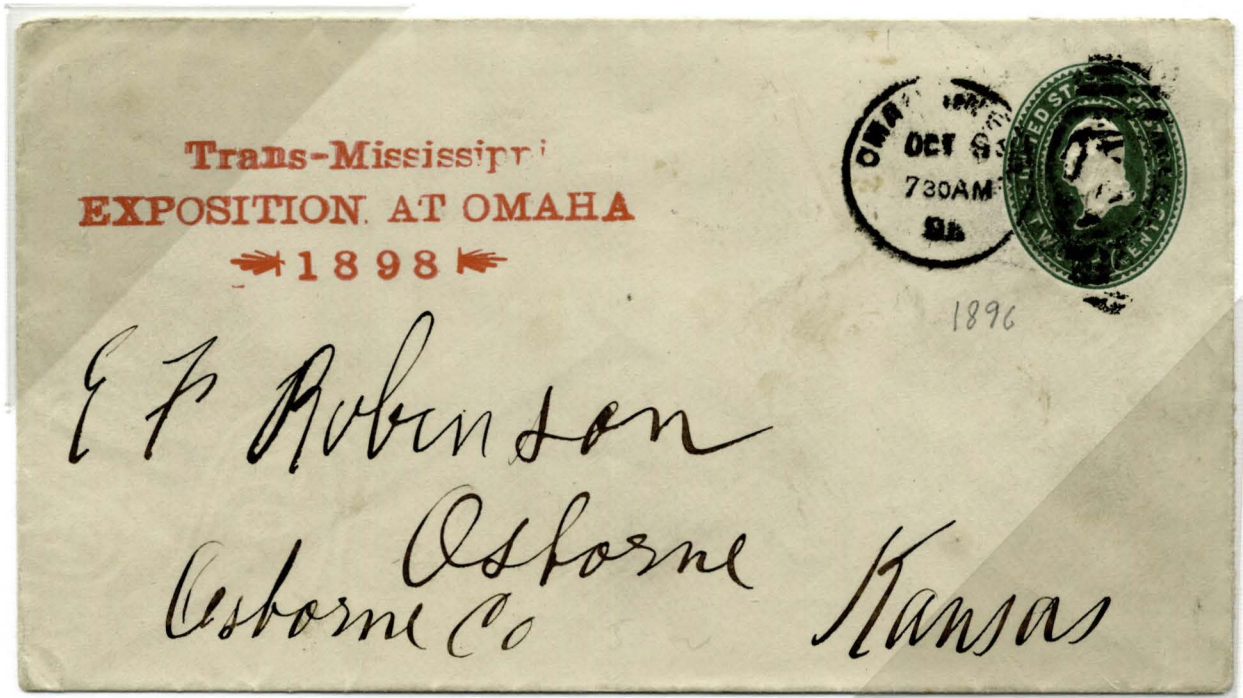 Trans-Mississippi
EXPOSITION AT OMAHA
1898
OCT
730AM
UNITED STA
TW
CENTS
1896
E F Robinson
Osborne
Osborne Co
Kansas